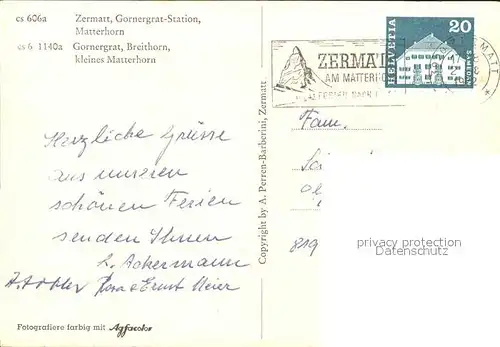 cs 606a Zermatt, Gornergrat-Station,
Matterhorn
cs 6 1140a Gornergrat, Breithorn,
kleines Matterhorn
HELVETIA
20
SAMEDAN
ZERMATT
AM MATTERHO
Herzliche Grüsse
aus unseren
schönen Ferien
senden Ihnen
L. Ackermann
Rosa & Ernst Meier
Fam.
819
privacy protection
watermark
Copyright by A. Perren-Barberini, Zermatt
Fotografiere farbig mit Agfacolor